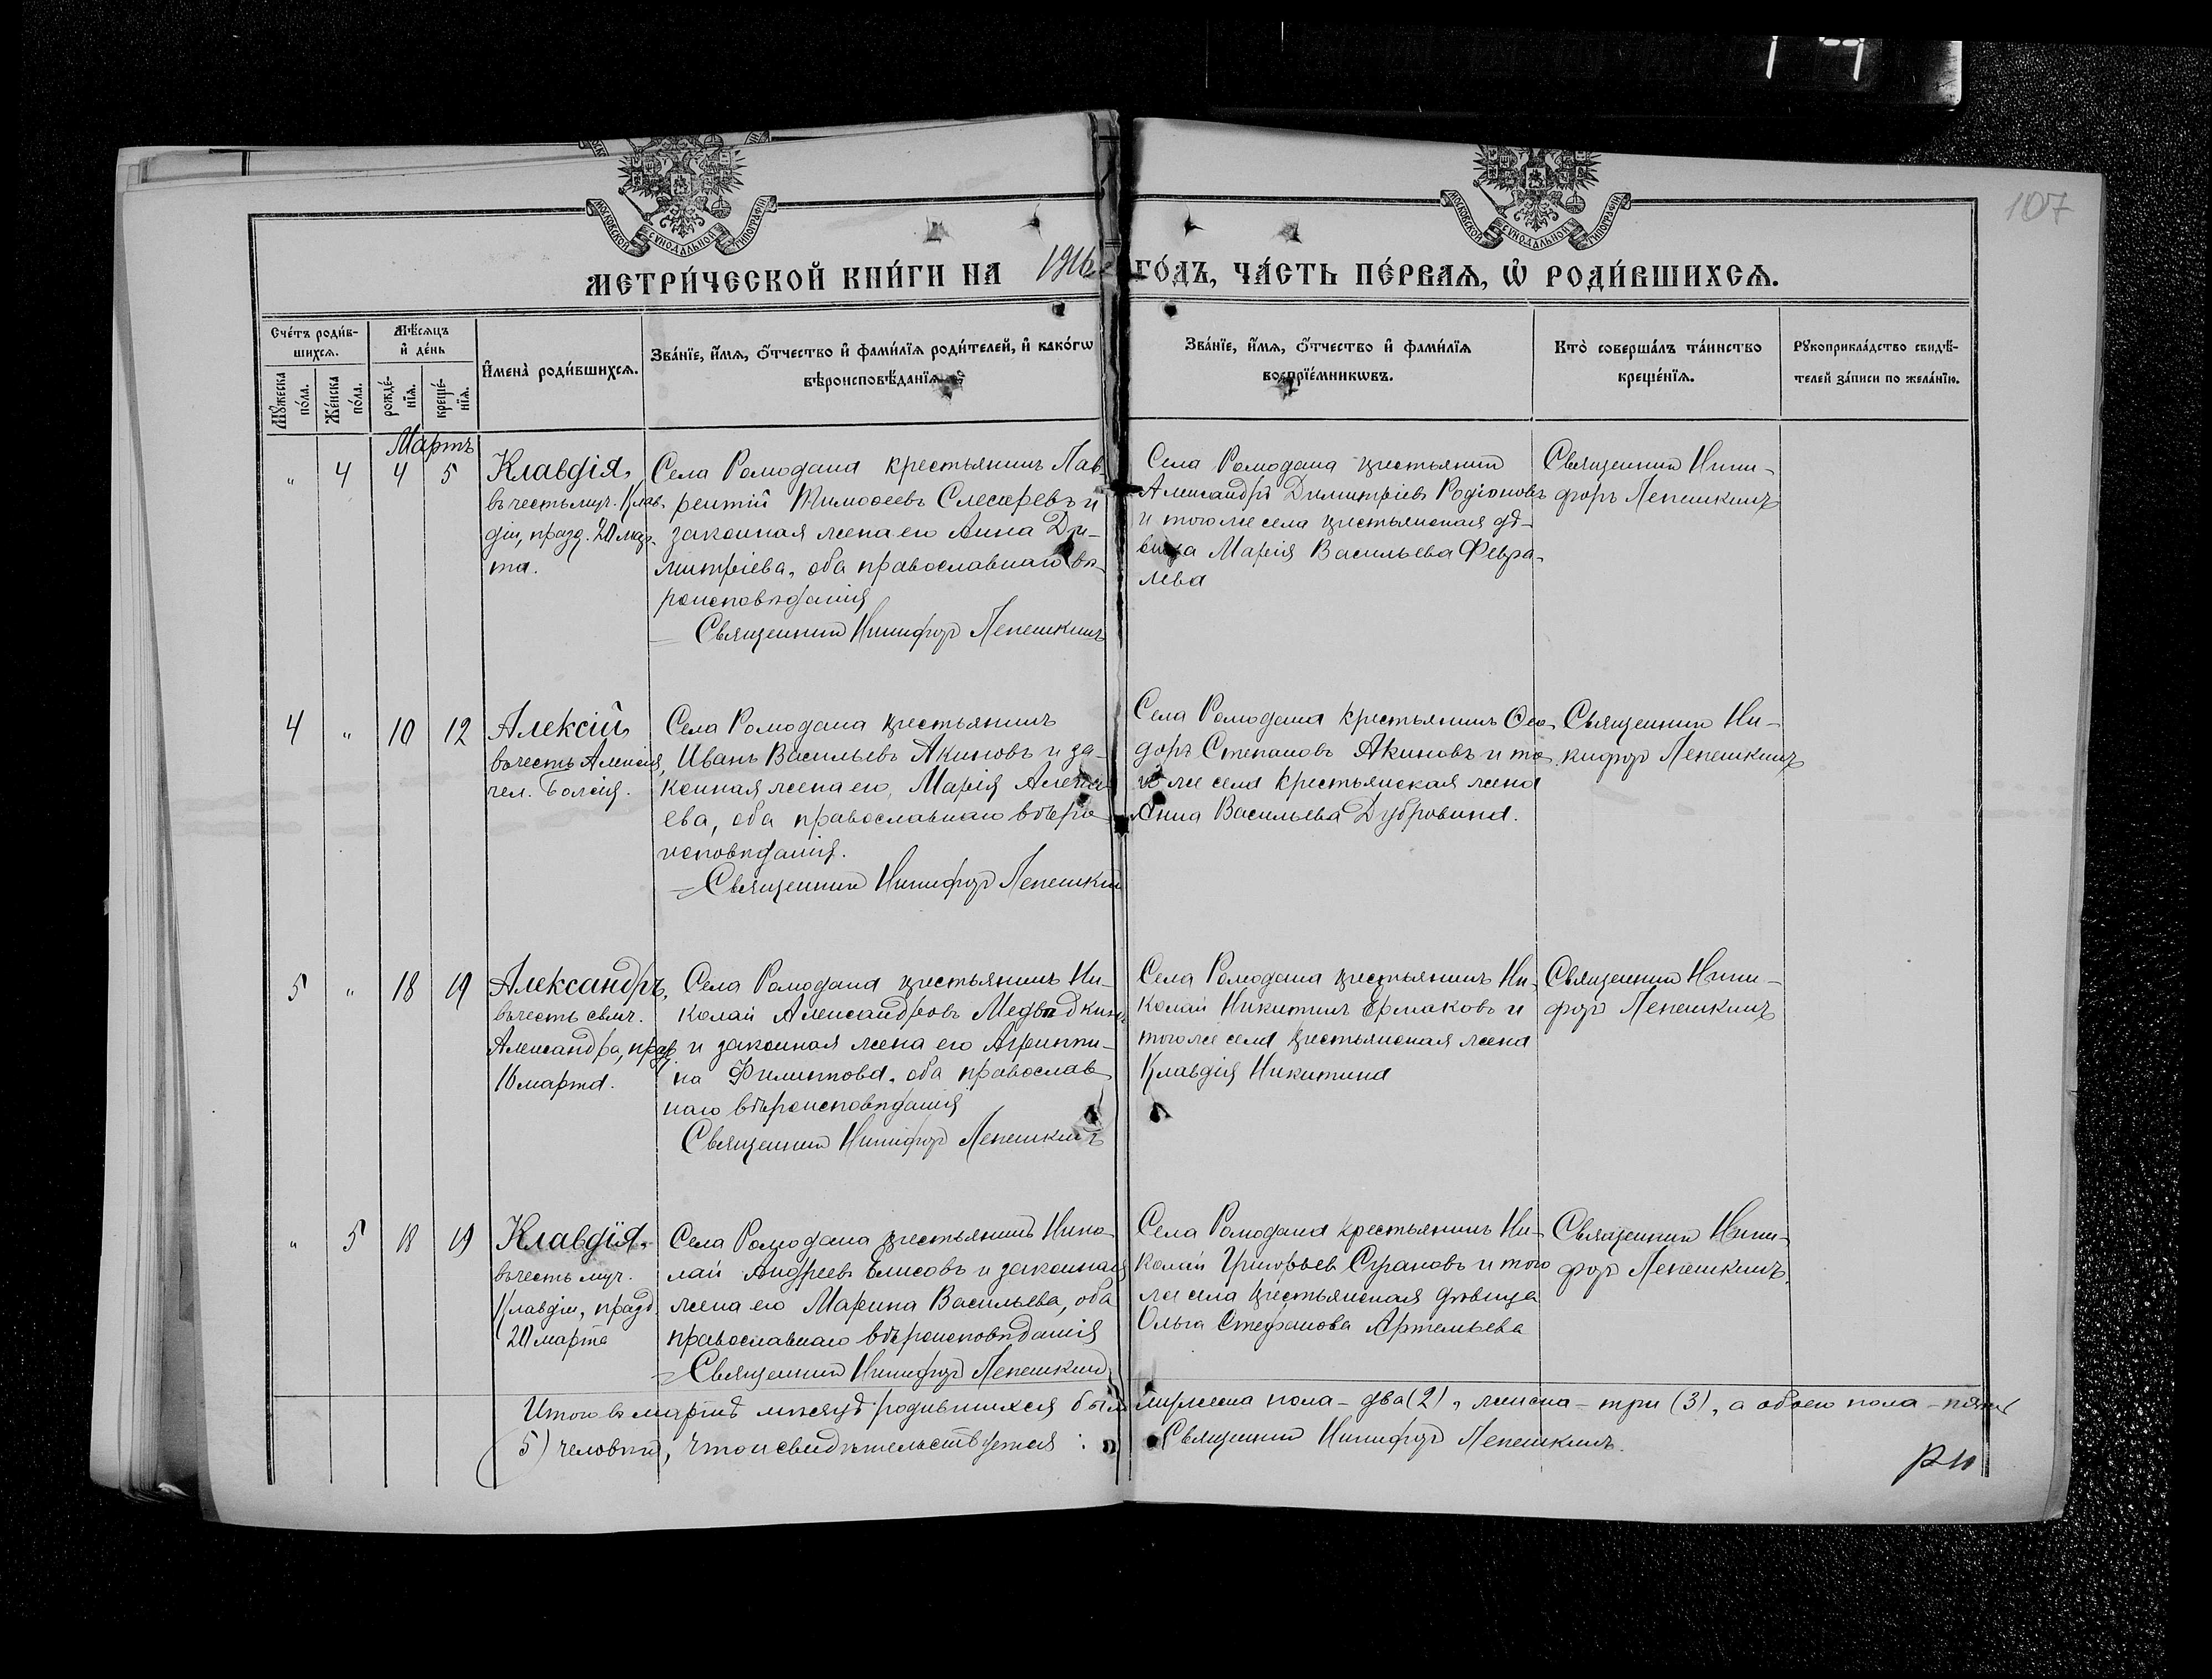 107
МОСКОВСКОЙ СУНОДАЛЬНОЙ ТИПОГРАФІИ
МОСКОВСКОЙ СУНОДАЛЬНОЙ ТИПОГРАФІИ
МЕТРИ́ЧЕСКОЙ КНИ́ГИ НА 1916 ГО́ДЪ, ЧА́СТЬ ПЕ́РВАѦ, Ѡ҆ РОДИ́ВШИХСѦ.
Сче́тъ роди́в-
шихсѧ.
Мꙋ́жеска по́ла.
Же́нска по́ла.
Мѣ́сѧцъ
и҆ де́нь
рожде́-нїѧ.
креще́-нїѧ.
И҆мена̀ роди́вшихсѧ.
Зва́нїе, и҆́мѧ, ѻ҆́тчество и҆ фами́лїѧ роди́телей, и҆ како́гѡ
вѣроисповѣ́данїѧ.
Зва́нїе, и҆́мѧ, ѻ҆́тчество и҆ фами́лїѧ
воспрїе́мникѡвъ.
Кто̀ соверша́лъ та́инство
креще́нїѧ.
Рꙋкоприкла́дство свидѣ́-
телей за́писи по жела́нїю.
Мартъ
" 4 4 5
Клавдія,
въ честь муч. Клав-
діи, празд. 20 мар-
та.
Села Ромодана крестьянинъ Лав-
рентій Тимоѳеевъ Слесаревъ и
законная жена его Анна Ди-
митріева, оба православнаго вѣ-
роисповѣданія
Священникъ Никифоръ Лепешкинъ
Села Ромодана крестьянинъ
Александръ Димитріевъ Родіоновъ
и того же села крестьянская дѣ-
вица Марія Васильева Февра-
лева
Священникъ Ники-
форъ Лепешкинъ
4 " 10 12
Алексій,
въ честь Алексія,
чел. Божія.
Села Ромодана крестьянинъ
Иванъ Васильевъ Акимовъ и за-
конная жена его, Марія Алексѣ-
ева, оба православнаго вѣро
исповѣданія.
Священникъ Никифоръ Лепешкин
Села Ромодана крестьянинъ Ѳео-
доръ Степановъ Акимовъ и то-
го же села крестьянская жена
Анна Васильева Дубровина.
Священникъ Ни-
кифоръ Лепешкинъ
5 " 18 19
Александръ,
въ честь свмч.
Александра, празд
16 марта.
Села Ромодана крестьянинъ Ни-
колай Александровъ Медвѣдкинъ
и законная жена его Агриппи-
на Филиппова, оба православ-
наго вѣроисповѣданія
Священникъ Никифоръ Лепешкинъ
Села Ромодана крестьянинъ Ни-
колай Никитинъ Ермаковъ и
того же села крестьянская жена
Клавдія Никитина
Священникъ Ники-
форъ Лепешкинъ
" 5 18 19
Клавдія,
въ честь муч.
Клавдіи, празд.
20 марта
Села Ромодана крестьянинъ Нико-
лай Андреевъ Елисовъ и законная
жена его Марина Васильева, оба
православнаго вѣроисповѣданія
Священникъ Никифоръ Лепешкинъ
Села Ромодана крестьянинъ Ни-
колай Григорьевъ и того
же села крестьянская дѣвица
Ольга Стефанова Артемьева
Священникъ Ники-
форъ Лепешкинъ.
Итого въ мартѣ мѣсяцѣ родившихся было мужеска пола - два (2), женска - три (3), а обоего пола - пять
(5) человѣкъ, что и свидѣтельствуется: Священникъ Никифоръ Лепешкинъ.